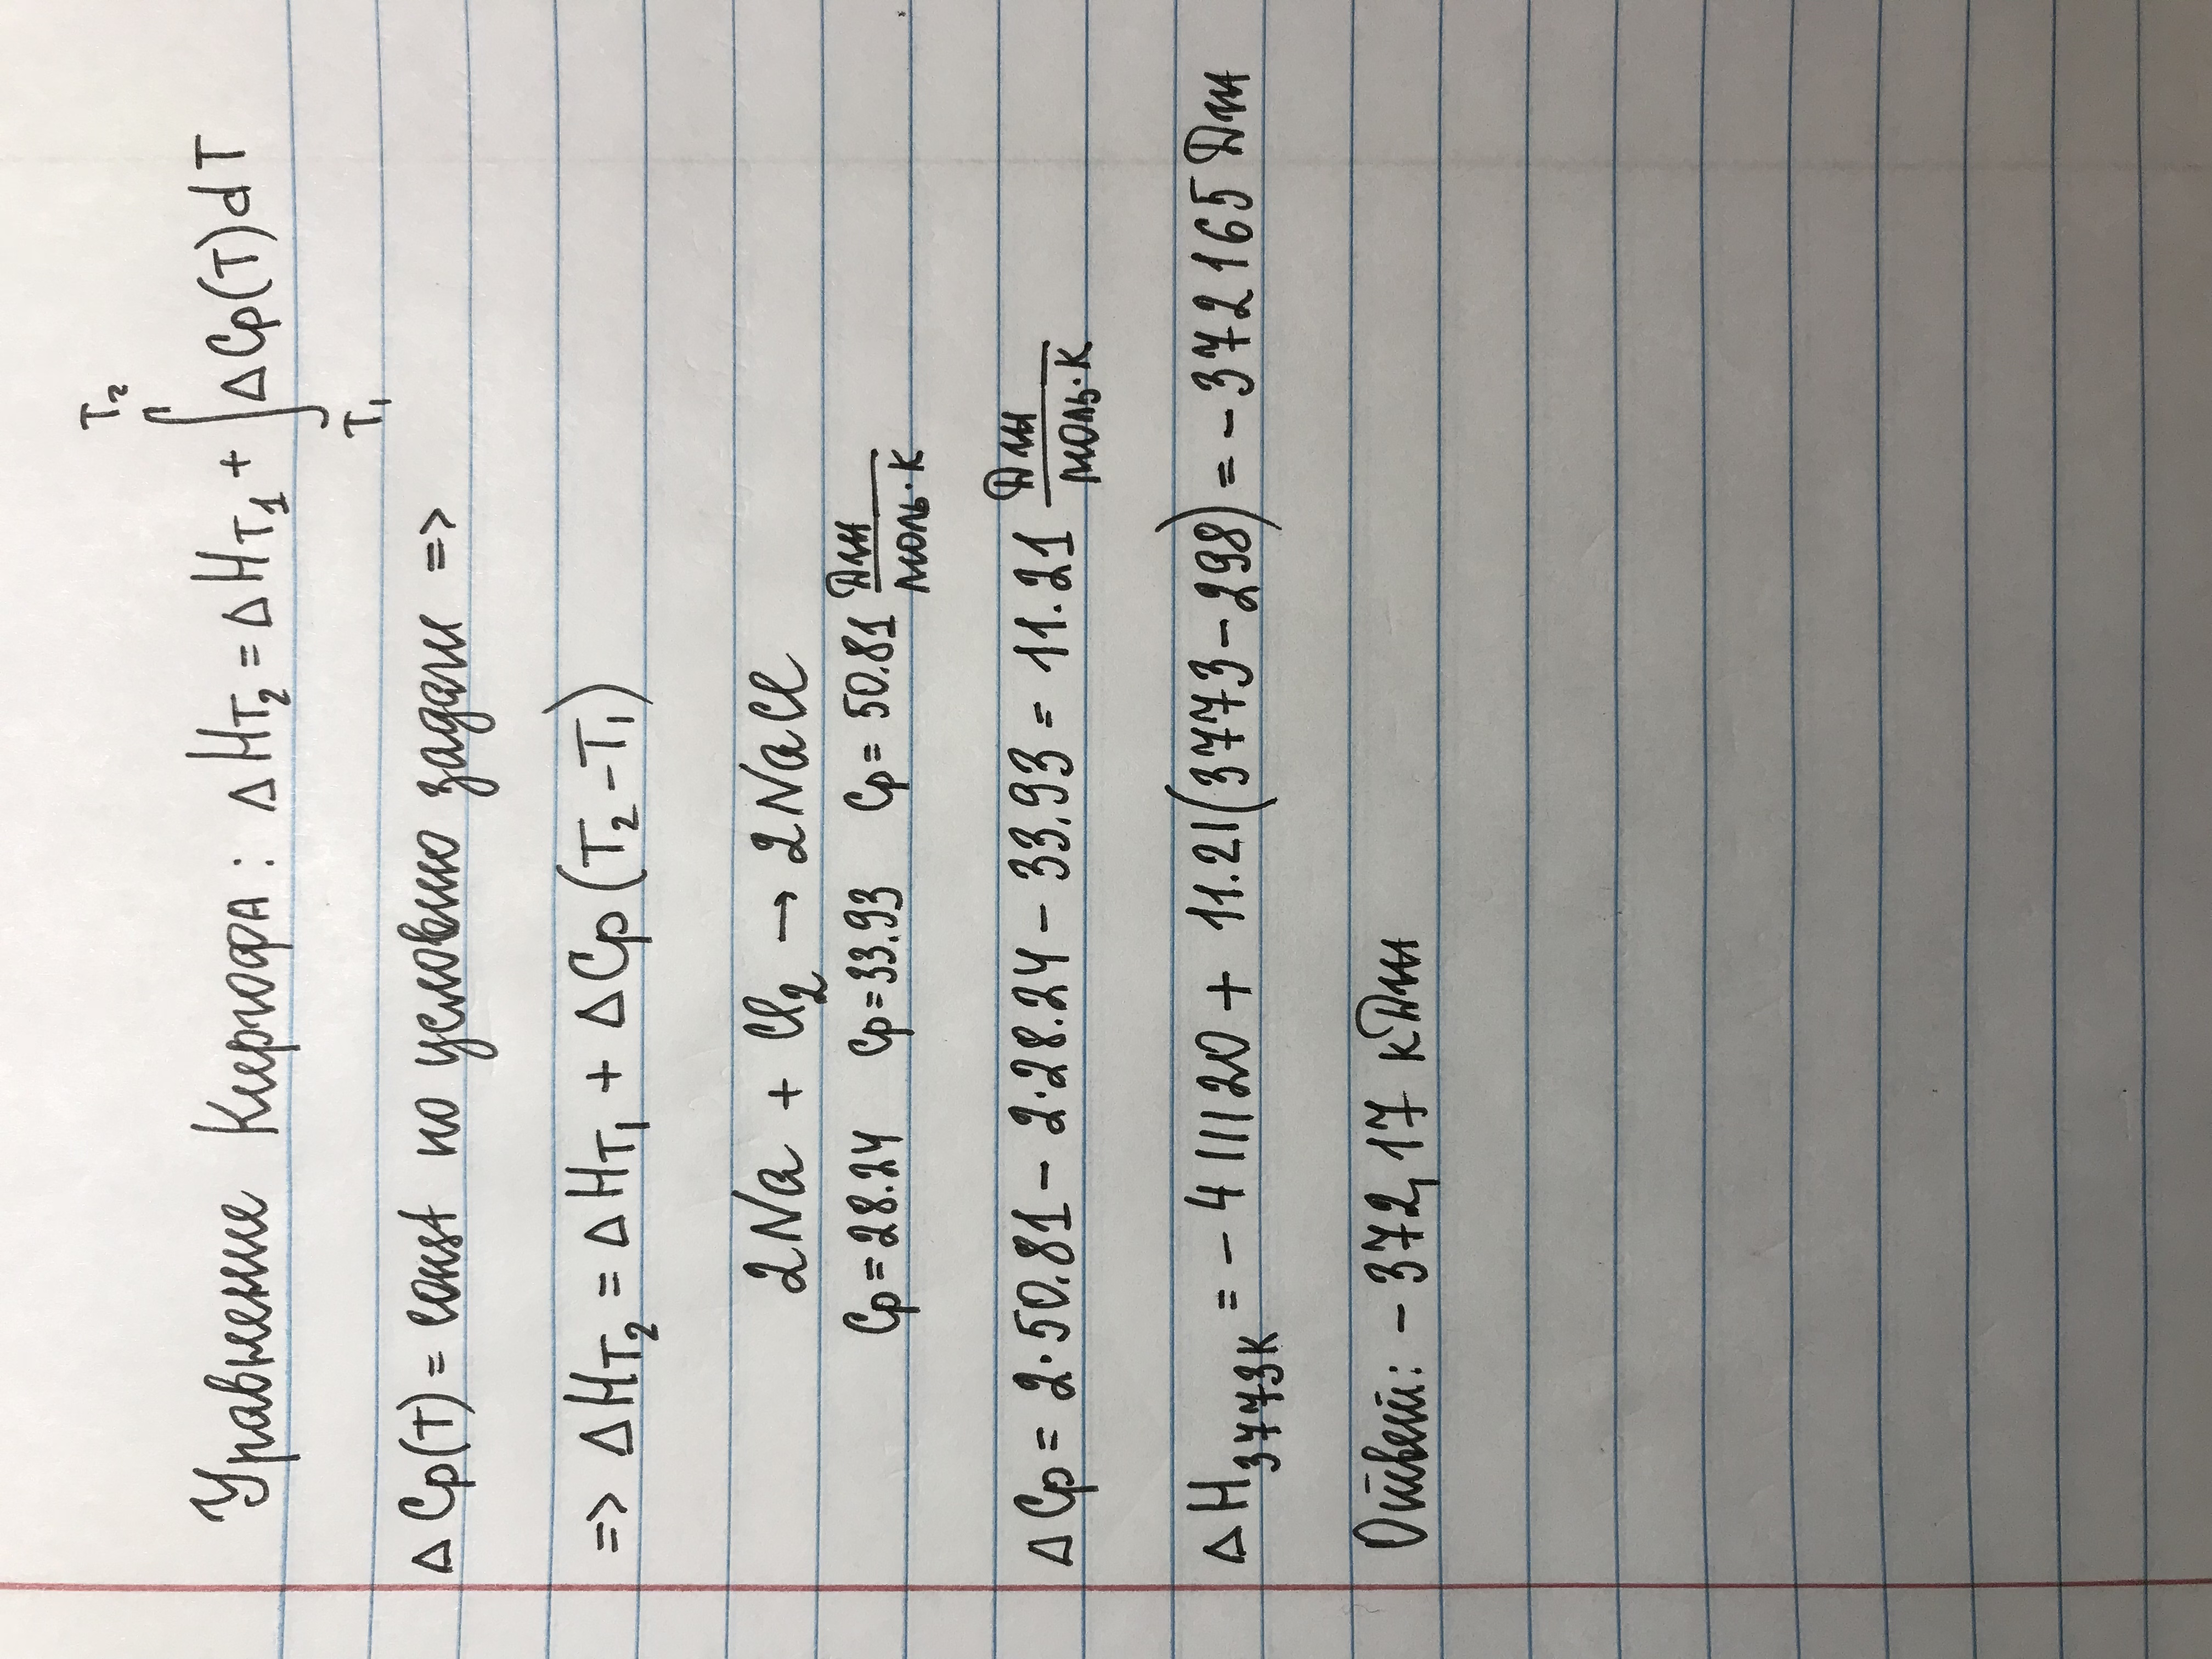 Уравнение Кирхгофа: ΔH_T₂ = ΔH_T₁ + ∫_T₁^T₂ ΔCp(T)dT
ΔCp(T) = const по условию задачи =>
=> ΔH_T₂ = ΔH_T₁ + ΔCp(T₂-T₁)
2Na + Cl₂ → 2NaCl
Cp=28.24 Cp=33.93 Cp=50.81 Дж/моль·К
ΔCp = 2·50.81 - 2·28.24 - 33.93 = 11.21 Дж/моль·К
ΔH_3773K = -411120 + 11.21(3773-298) = -372165 Дж
Ответ: -372,17 кДж